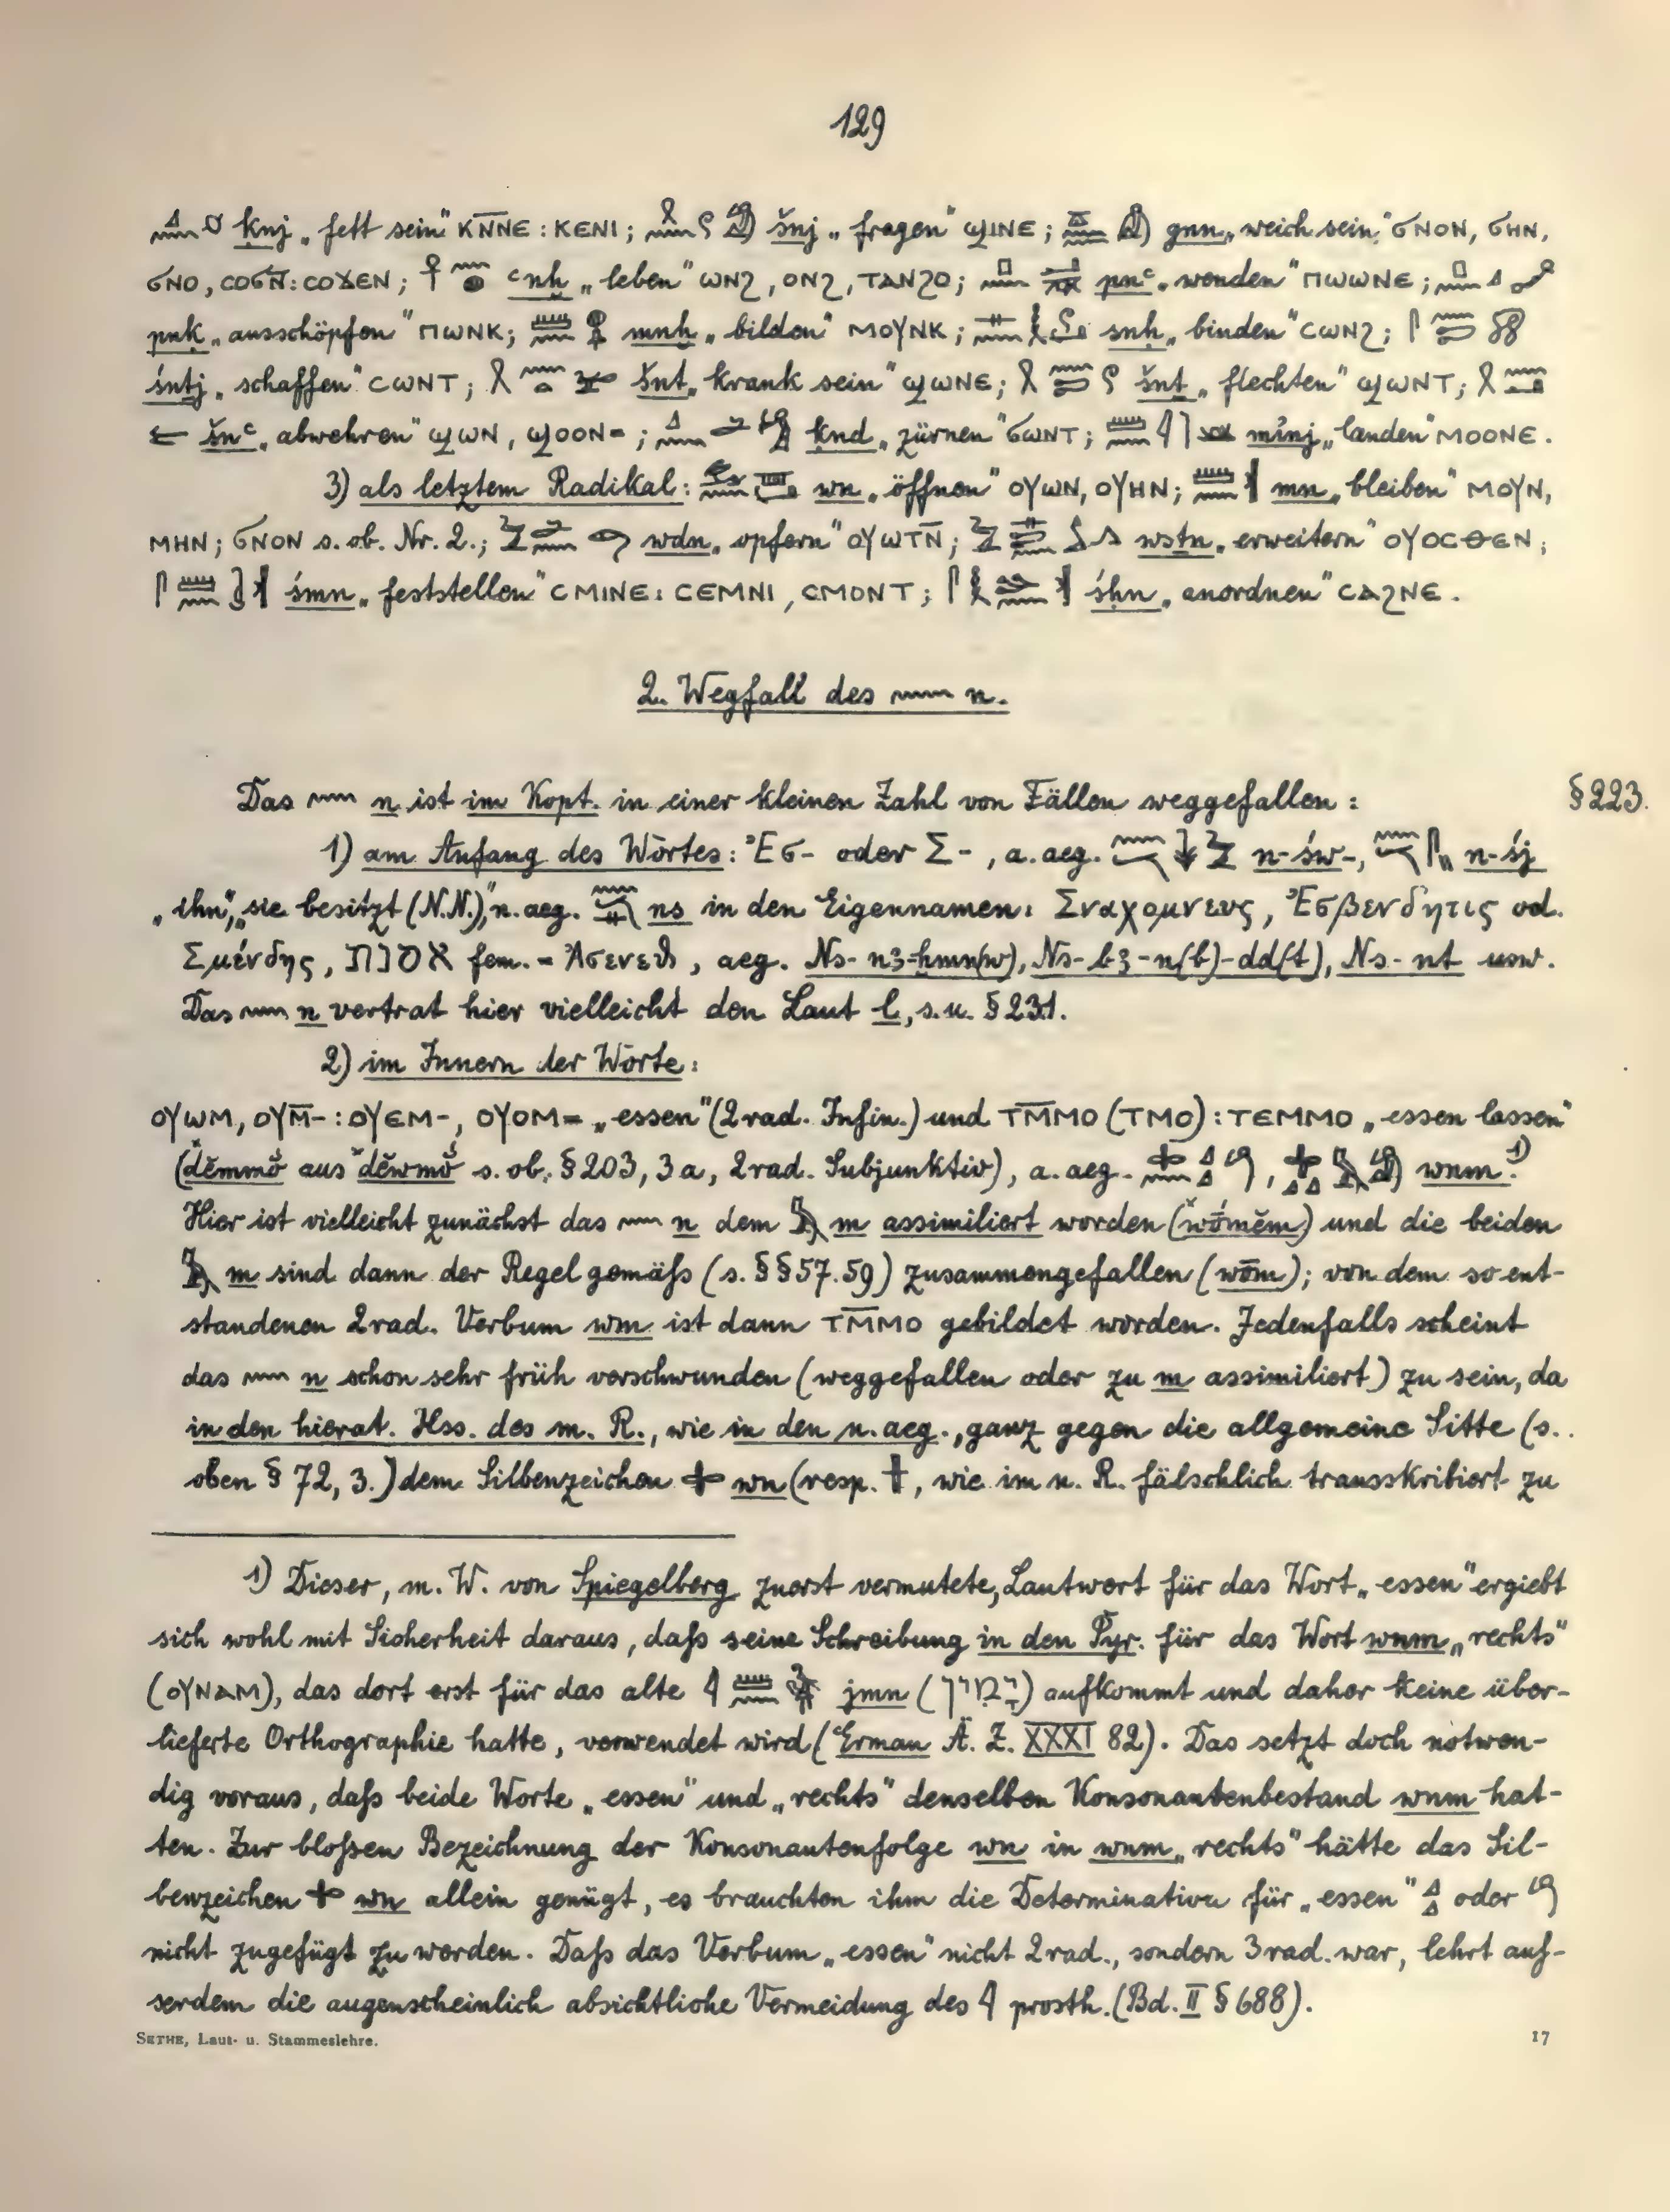 129
ḳnj „fett sein" ⲕⲛ̅ⲛⲉ : ⲕⲉⲛⲓ; šnj „fragen" ϣⲓⲛⲉ; gnn „weich sein" ϭⲛⲟⲛ, ϭⲏⲛ,
ϭⲛⲟ, ⲥⲟϭⲛ̅: ⲥⲟϫⲉⲛ; ꜥnḫ „leben" ⲱⲛϩ, ⲟⲛϩ, ⲧⲁⲛϩⲟ; pnꜥ „wenden" ⲡⲱⲱⲛⲉ;
pnḳ „ausschöpfen" ⲡⲱⲛⲕ; mnḫ „bilden" ⲙⲟⲩⲛⲕ; snḥ „binden" ⲥⲱⲛϩ;
śntj „schaffen" ⲥⲱⲛⲧ; šnt „krank sein" ϣⲱⲛⲉ; šnt „flechten" ϣⲱⲛⲧ;
šnꜥ „abwehren" ϣⲱⲛ, ϣⲟⲟⲛ=; ḳnd „zürnen" ϭⲱⲛⲧ; mînj „landen" ⲙⲟⲟⲛⲉ.
3) als letztem Radikal: wn „öffnen" ⲟⲩⲱⲛ, ⲟⲩⲏⲛ; mn „bleiben" ⲙⲟⲩⲛ,
ⲙⲏⲛ; ϭⲛⲟⲛ s. ob. Nr. 2.; wdn „opfern" ⲟⲩⲱⲧⲛ̅; wstn „erweitern" ⲟⲩⲟⲥⲑⲉⲛ;
śmn „feststellen" ⲥⲙⲓⲛⲉ: ⲥⲉⲙⲛⲓ, ⲥⲙⲟⲛⲧ; śḥn „anordnen" ⲥⲁϩⲛⲉ.
2. Wegfall des 𓈖 n.
Das 𓈖 n ist im Kopt. in einer kleinen Zahl von Fällen weggefallen: §223.
1) am Anfang des Wortes: Ἐσ- oder Σ-, a. aeg. n-św-, n-śj
„ihn", „sie besitzt (N.N.)", n. aeg. ns in den Eigennamen: Σναχομνευς, Ἐσβενδητις od.
Σμένδης, אסנת fem. = Ἀσενεθ, aeg. Ns-nꜣ-ḫmn(w), Ns-bꜣ-n(b)-dd(t), Ns-nt usw.
Das 𓈖 n vertrat hier vielleicht den Laut l, s. u. § 231.
2) im Innern der Worte:
ⲟⲩⲱⲙ, ⲟⲩⲙ̅-: ⲟⲩⲉⲙ-, ⲟⲩⲟⲙ= „essen" (2rad. Infin.) und ⲧⲙ̅ⲙⲟ (ⲧⲙⲟ): ⲧⲉⲙⲙⲟ „essen lassen"
(děmmŏ́ aus *děwmŏ́ s. ob. § 203, 3a, 2rad. Subjunktiv), a. aeg. wnm. 1)
Hier ist vielleicht zunächst das 𓈖 n dem 𓅓 m assimiliert worden (*wŏ́měm) und die beiden
𓅓 m sind dann der Regel gemäß (s. §§ 57. 59) zusammengefallen (wōm); von dem so ent-
standenen 2rad. Verbum wm ist dann ⲧⲙ̅ⲙⲟ gebildet worden. Jedenfalls scheint
das 𓈖 n schon sehr früh verschwunden (weggefallen oder zu m assimiliert) zu sein, da
in den hierat. Hss. des m. R., wie in den n. aeg., ganz gegen die allgemeine Sitte (s.
oben § 72, 3.) dem Silbenzeichen 𓏶 wn (resp. , wie im n. R. fälschlich transskribiert zu
1) Dieser, m. W. von Spiegelberg zuerst vermutete, Lautwert für das Wort „essen" ergiebt
sich wohl mit Sicherheit daraus, daß seine Schreibung in den Pyr. für das Wort wnm „rechts"
(ⲟⲩⲛⲁⲙ), das dort erst für das alte jmn (יָמִין) aufkommt und daher keine über-
lieferte Orthographie hatte, verwendet wird (Erman Ä. Z. XXXI 82). Das setzt doch notwen-
dig voraus, daß beide Worte „essen" und „rechts" denselben Konsonantenbestand wnm hat-
ten. Zur bloßen Bezeichnung der Konsonantenfolge wn in wnm „rechts" hätte das Sil-
benzeichen 𓏶 wn allein genügt, es brauchten ihm die Determinativa für „essen" oder
nicht zugefügt zu werden. Daß das Verbum „essen" nicht 2rad., sondern 3rad. war, lehrt auß-
serdem die augenscheinlich absichtliche Vermeidung des 𓇋 prosth. (Bd. II § 688).
SETHE, Laut- u. Stammeslehre. 17